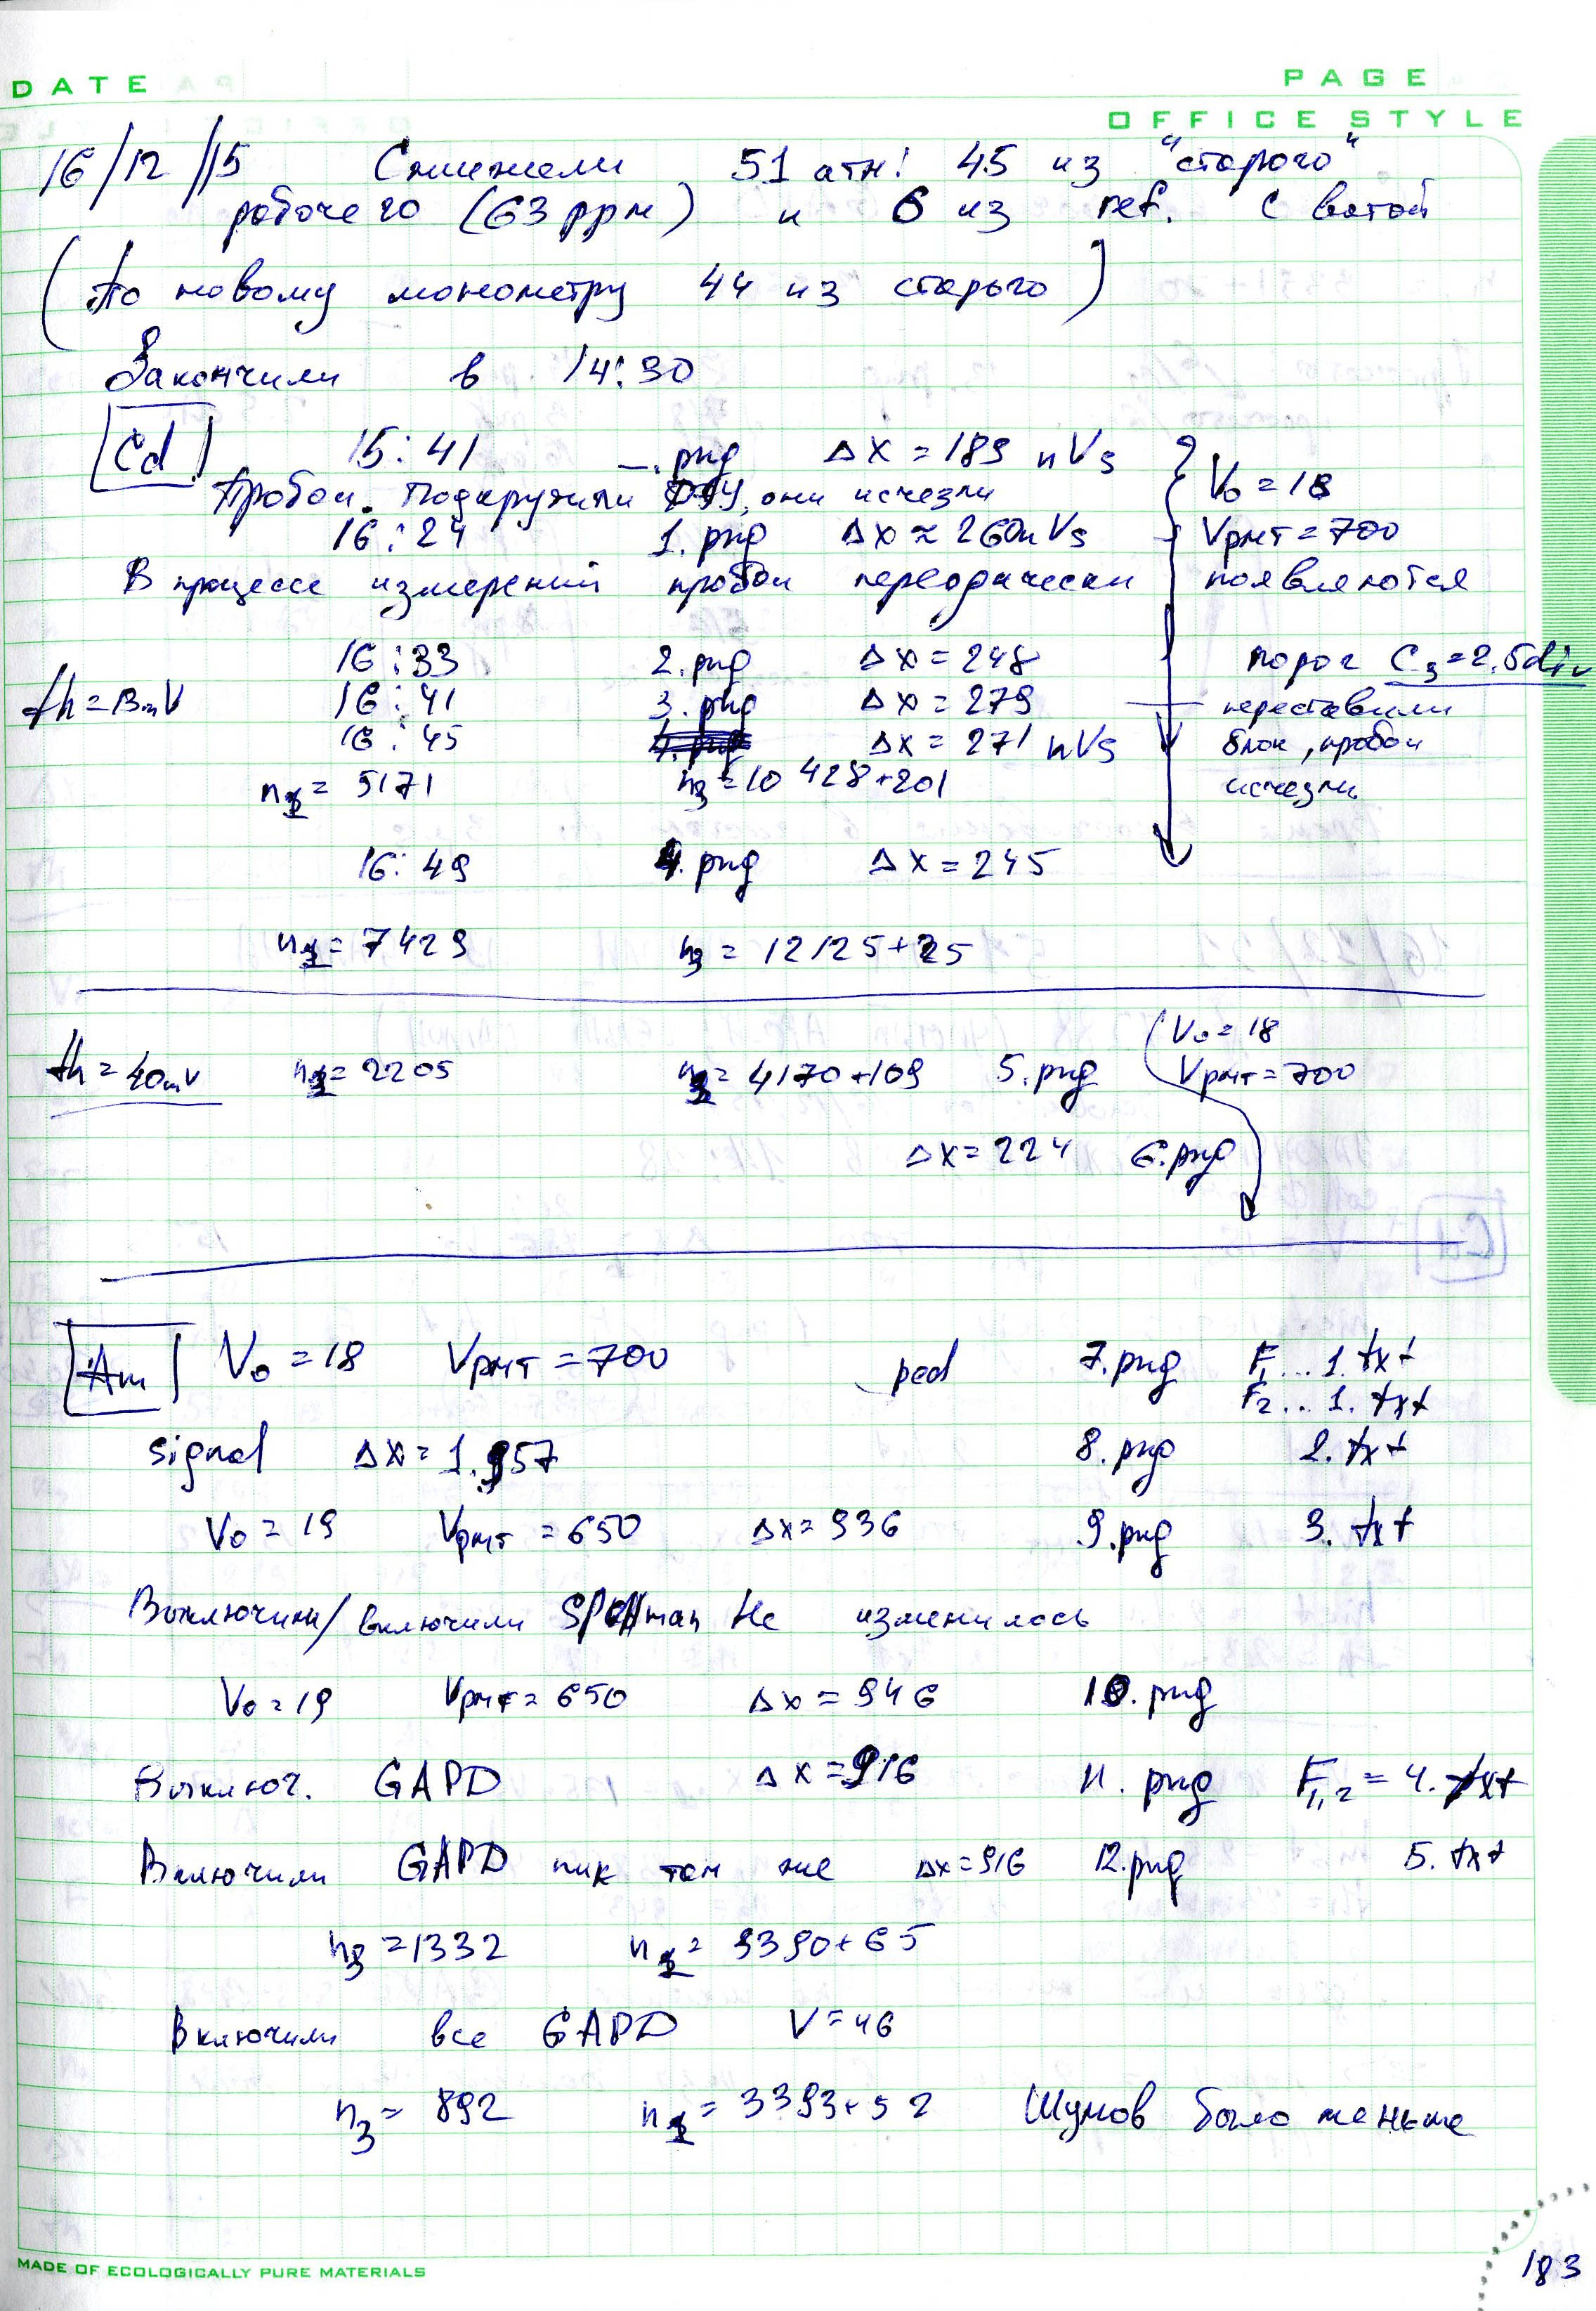 DATE
PAGE
OFFICE STYLE
16/12/15 Сжижали 51 атм! 45 из "старого"
рабочего (63 ppm) и 6 из ref. с ватой
(По новому монометру 44 из старого)
Закончили в 14:30
Cd 15:41 —.png ΔX = 189 nVs
V₀ = 18
Пробои. Подкрутили, они исчезли
16:24 1.png ΔX ≈ 260nVs VPMT = 700
В процессе измерений пробои переодически появляются
16:33 2.png ΔX = 248 порог C₃ = 2.5div
th = 13mV 16:41 3.png ΔX = 279 переставили
16:45 ΔX = 271 nVs блок, пробои
n₁ = 5171 n₃ = 10428+201 исчезли
16:49 4.png ΔX = 245
n₁ = 7429 n₃ = 12125+25
V₀ = 18
th = 40mV n₁ = 2205 n₃ = 4170+109 5.png VPMT = 700
ΔX = 224 6.png
Am V₀ = 18 VPMT = 700 ped 7.png F₁...1.txt
F₂...1.txt
signal ΔX = 1.957 8.png 2.txt
V₀ = 19 VPMT = 650 ΔX = 936 9.png 3.txt
Выключили/включили Spellman Не изменилось
V₀ = 19 VPMT = 650 ΔX = 946 10.png
Выключ. GAPD ΔX = 916 11.png F₁,₂ = 4.txt
Включили GAPD пик там же ΔX = 916 12.png 5.txt
n₃ = 1332 n₁ = 3390+65
Включили все GAPD V = 46
n₃ = 892 n₁ = 3393+52 Шумов было меньше
MADE OF ECOLOGICALLY PURE MATERIALS
183